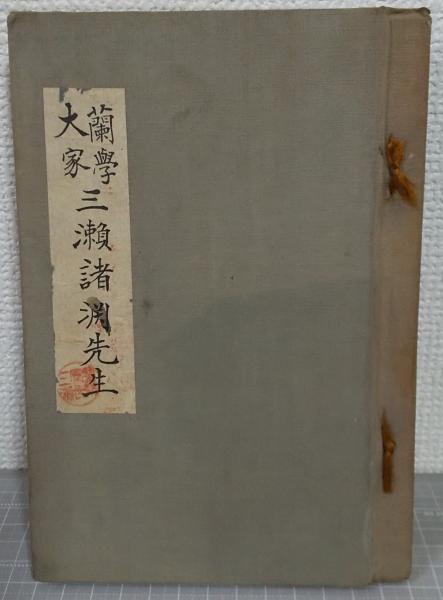 蘭學
大家
三瀬諸渕先生